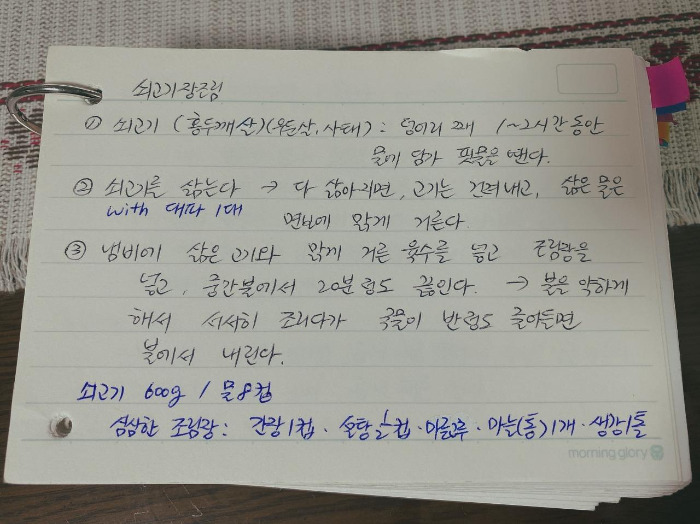 쇠고기장조림
① 쇠고기 (홍두깨살)(우둔살, 사태) : 덩어리째 1~2시간 동안
물에 담가 핏물을 뺀다.
② 쇠고기를 삶는다 → 다 삶아지면, 고기는 건져내고, 삶은 물은
with 대파 1대 면보에 맑게 거른다.
③ 냄비에 삶은 고기와 맑게 거른 육수를 넣고 조림장을
넣고, 중간불에서 20분 정도 끓인다. → 불을 약하게
해서 서서히 조리다가 국물이 반정도 졸아들면
불에서 내린다.
쇠고기 600g / 물 8컵
심심한 조림장 : 간장 1컵 · 설탕 ½컵 · 마른고추 · 마늘(통) 1개 · 생강 1톨
morning glory